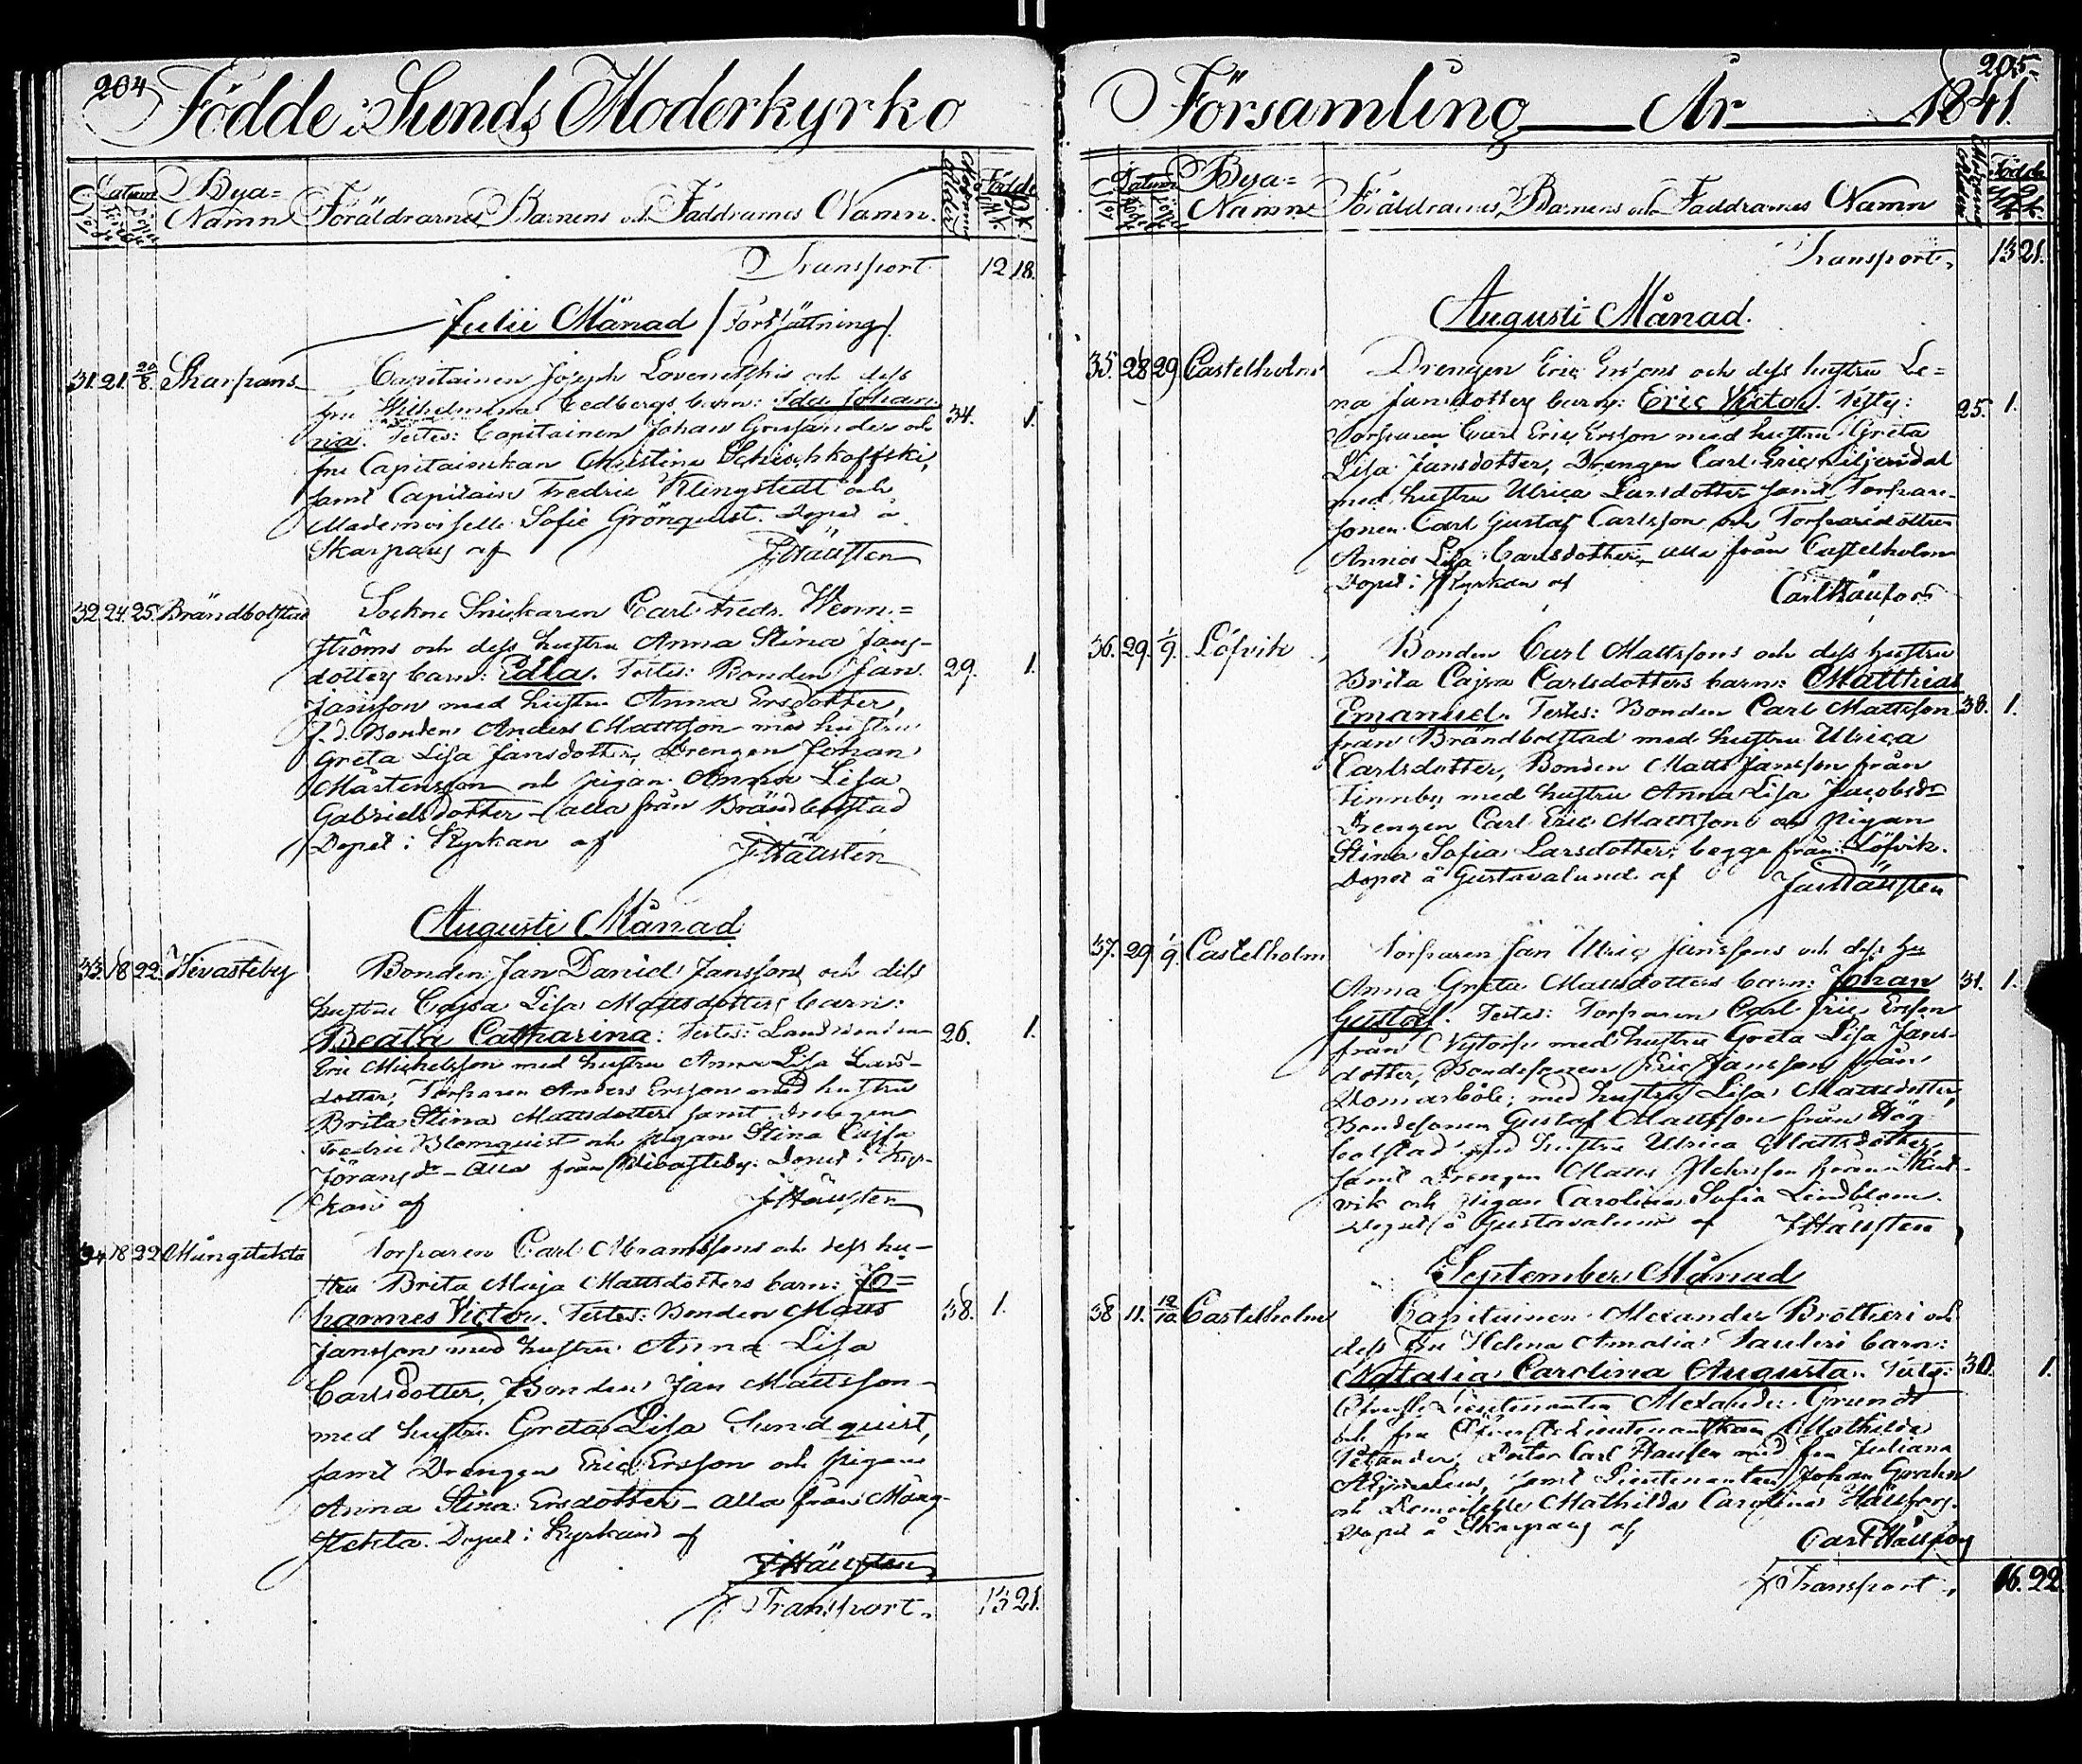 204
Födde i Sunds Moderkyrko
Datum
Bya=
Namn
Föräldrarnes, Barnens och Faddrarnes Namn.
Födde
Transport 12 18.
Julii Månad /Fortsättning/.
31. 21. 20/8. Skarpans
Capitainen Joseph och dess
fru Wilhelmina Cedbergs barn: Ida Johan=
na. Testes: Capitainen Johan och 34. 1.
fru Capitainskan Christina
samt Capitain Fredric Klingstedt och
Mademoiselle Sofie Grönqvist. Döpt å
Skarpans af J Häusten
32 24. 25. Brändbolstad
Sockne Snickaren Carl Fredr. Wenn=
ströms och dess hustru Anna Stina Jans-
dotters barn: Edla. Testes: Bonden Jan 29. 1.
Jansson med hustru Anna Ersdotter,
f.d. Bonden Anders Mattsson med hustru
Greta Lisa Jansdotter, Drengen Johan
Mårtensson och pigan Anna Lisa
Gabrielsdotter – alla från Brändbolstad
Döpt i Kyrkan af J Häusten
Augusti Månad
33. 18 22. Hivasteby
Bonden Jan Daniel Janssons och dess
hustru Cajsa Lisa Mattsdotters barn:
Beata Catharina: Testes: Landbonden 26. 1.
Eric Michelsson med hustru Anna Lisa Lars-
dotter, Torparen Anders Ersson med hustru
Brita Stina Mattsdotter samt Drengen
Fredric Blomquist och pigan Stina Cajsa
Göransdr – alla från Hivasteby. Döpt i Kyr-
kan af J Häusten
34 18 22 Mångstekta
Torparen Carl Abramssons och dess hu-
stru Brita Maja Mattsdotters barn: Jo=
hannes Victor. Testes: Bonden Matts 38. 1.
Jansson med hustru Anna Lisa
Carlsdotter, Bonden Jan Mattsson
med hustru Greta Lisa Sundquist,
samt Drengen Eric Ersson och pigan
Anna Stina Ersdotter – alla från Mång-
stekta. Döpt i Kyrkan af
J Häusten
Transport 13 21.
205
Församling År 1841.
Datum
Bya=
Namn
Föräldrarnes, Barnens och Faddrarnes Namn
Födde
Transport 13 21.
Augusti Månad.
35. 28 29 Castelholm
Drengen Eric Erssons och dess hustru Le=
na Jansdotters barn: Eric Victor. Testes: 25. 1.
Torparen Carl Eric Ersson med hustru Greta
Lisa Jansdotter, Drengen Carl Eric Liljendal
med hustru Ulrica Larsdotter samt Torpare-
sonen Carl Gustaf Carlsson och Torparedottren
Anna Lisa Carlsdotter, alla från Castelholm
Döpt i Kyrkan af Carl
36. 29. 1/9. Löfvik
Bonden Carl Mattssons och dess hustru
Brita Cajsa Carlsdotters barn: Matthias
Emanuel. Testes: Bonden Carl Mattsson 38. 1.
från Brändbolstad med hustru Ulrica
Carlsdotter, Bonden Matts Jansson från
Finnby med hustru Anna Lisa Jacobsdr
Drengen Carl Eric Mattsson och pigan
Stina Sofia Larsdotter, begge från Löfvik.
Döpt å Gustavalund af Häusten
37. 29 1/9. Castelholm
Torparen Jan Ulric Janssons och dess hu
Anna Greta Mattsdotters barn: Johan 31. 1.
Gustaf. Testes: Torparen Carl Eric Ersson
från Nytorp med hustru Greta Lisa Jans-
dotter, Bondesonen Eric Jansson från
Domarböle, med hustru Lisa Mattsdotter,
Bondesonen Gustaf Mattsson från Hög
bolstad med hustru Ulrica Mattsdotter,
samt Drengen Matts från
vik och Pigan Carolina Sofia Lindblom.
Döpt å Gustavalund af J Häusten
September Månad
38 11. 12/10. Castelholm
Capitainen Alexander Brotheri och
dess Fru Helena Amalia barn:
Natalia Carolina Augusta. Testes: 30. 1.
Lieutenanten Alexander Grundt
och fru Öfverste Lieutenantskan Mathilda
Carl med fru Juliana
samt Lieutenanten Johan
och Demoiselle Mathilda Carolina
Döpt å Skarpans af
Carl
Transport 16. 22.